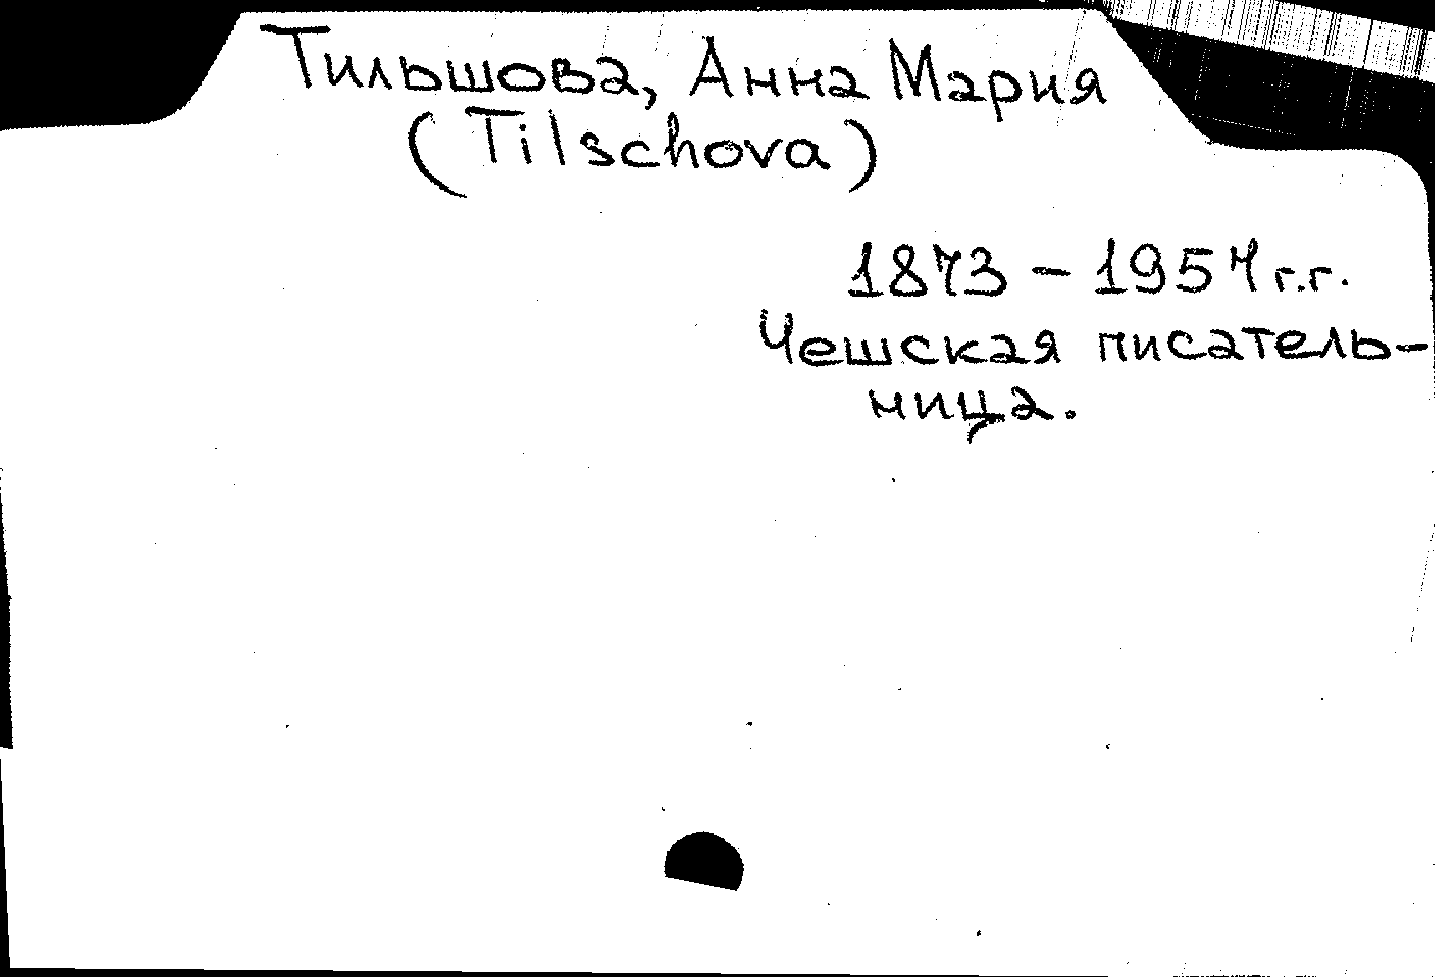 Тильшова, Анна Мария
(Tilschova)
1873 – 1957 г.г.
Чешская писатель-
ница.